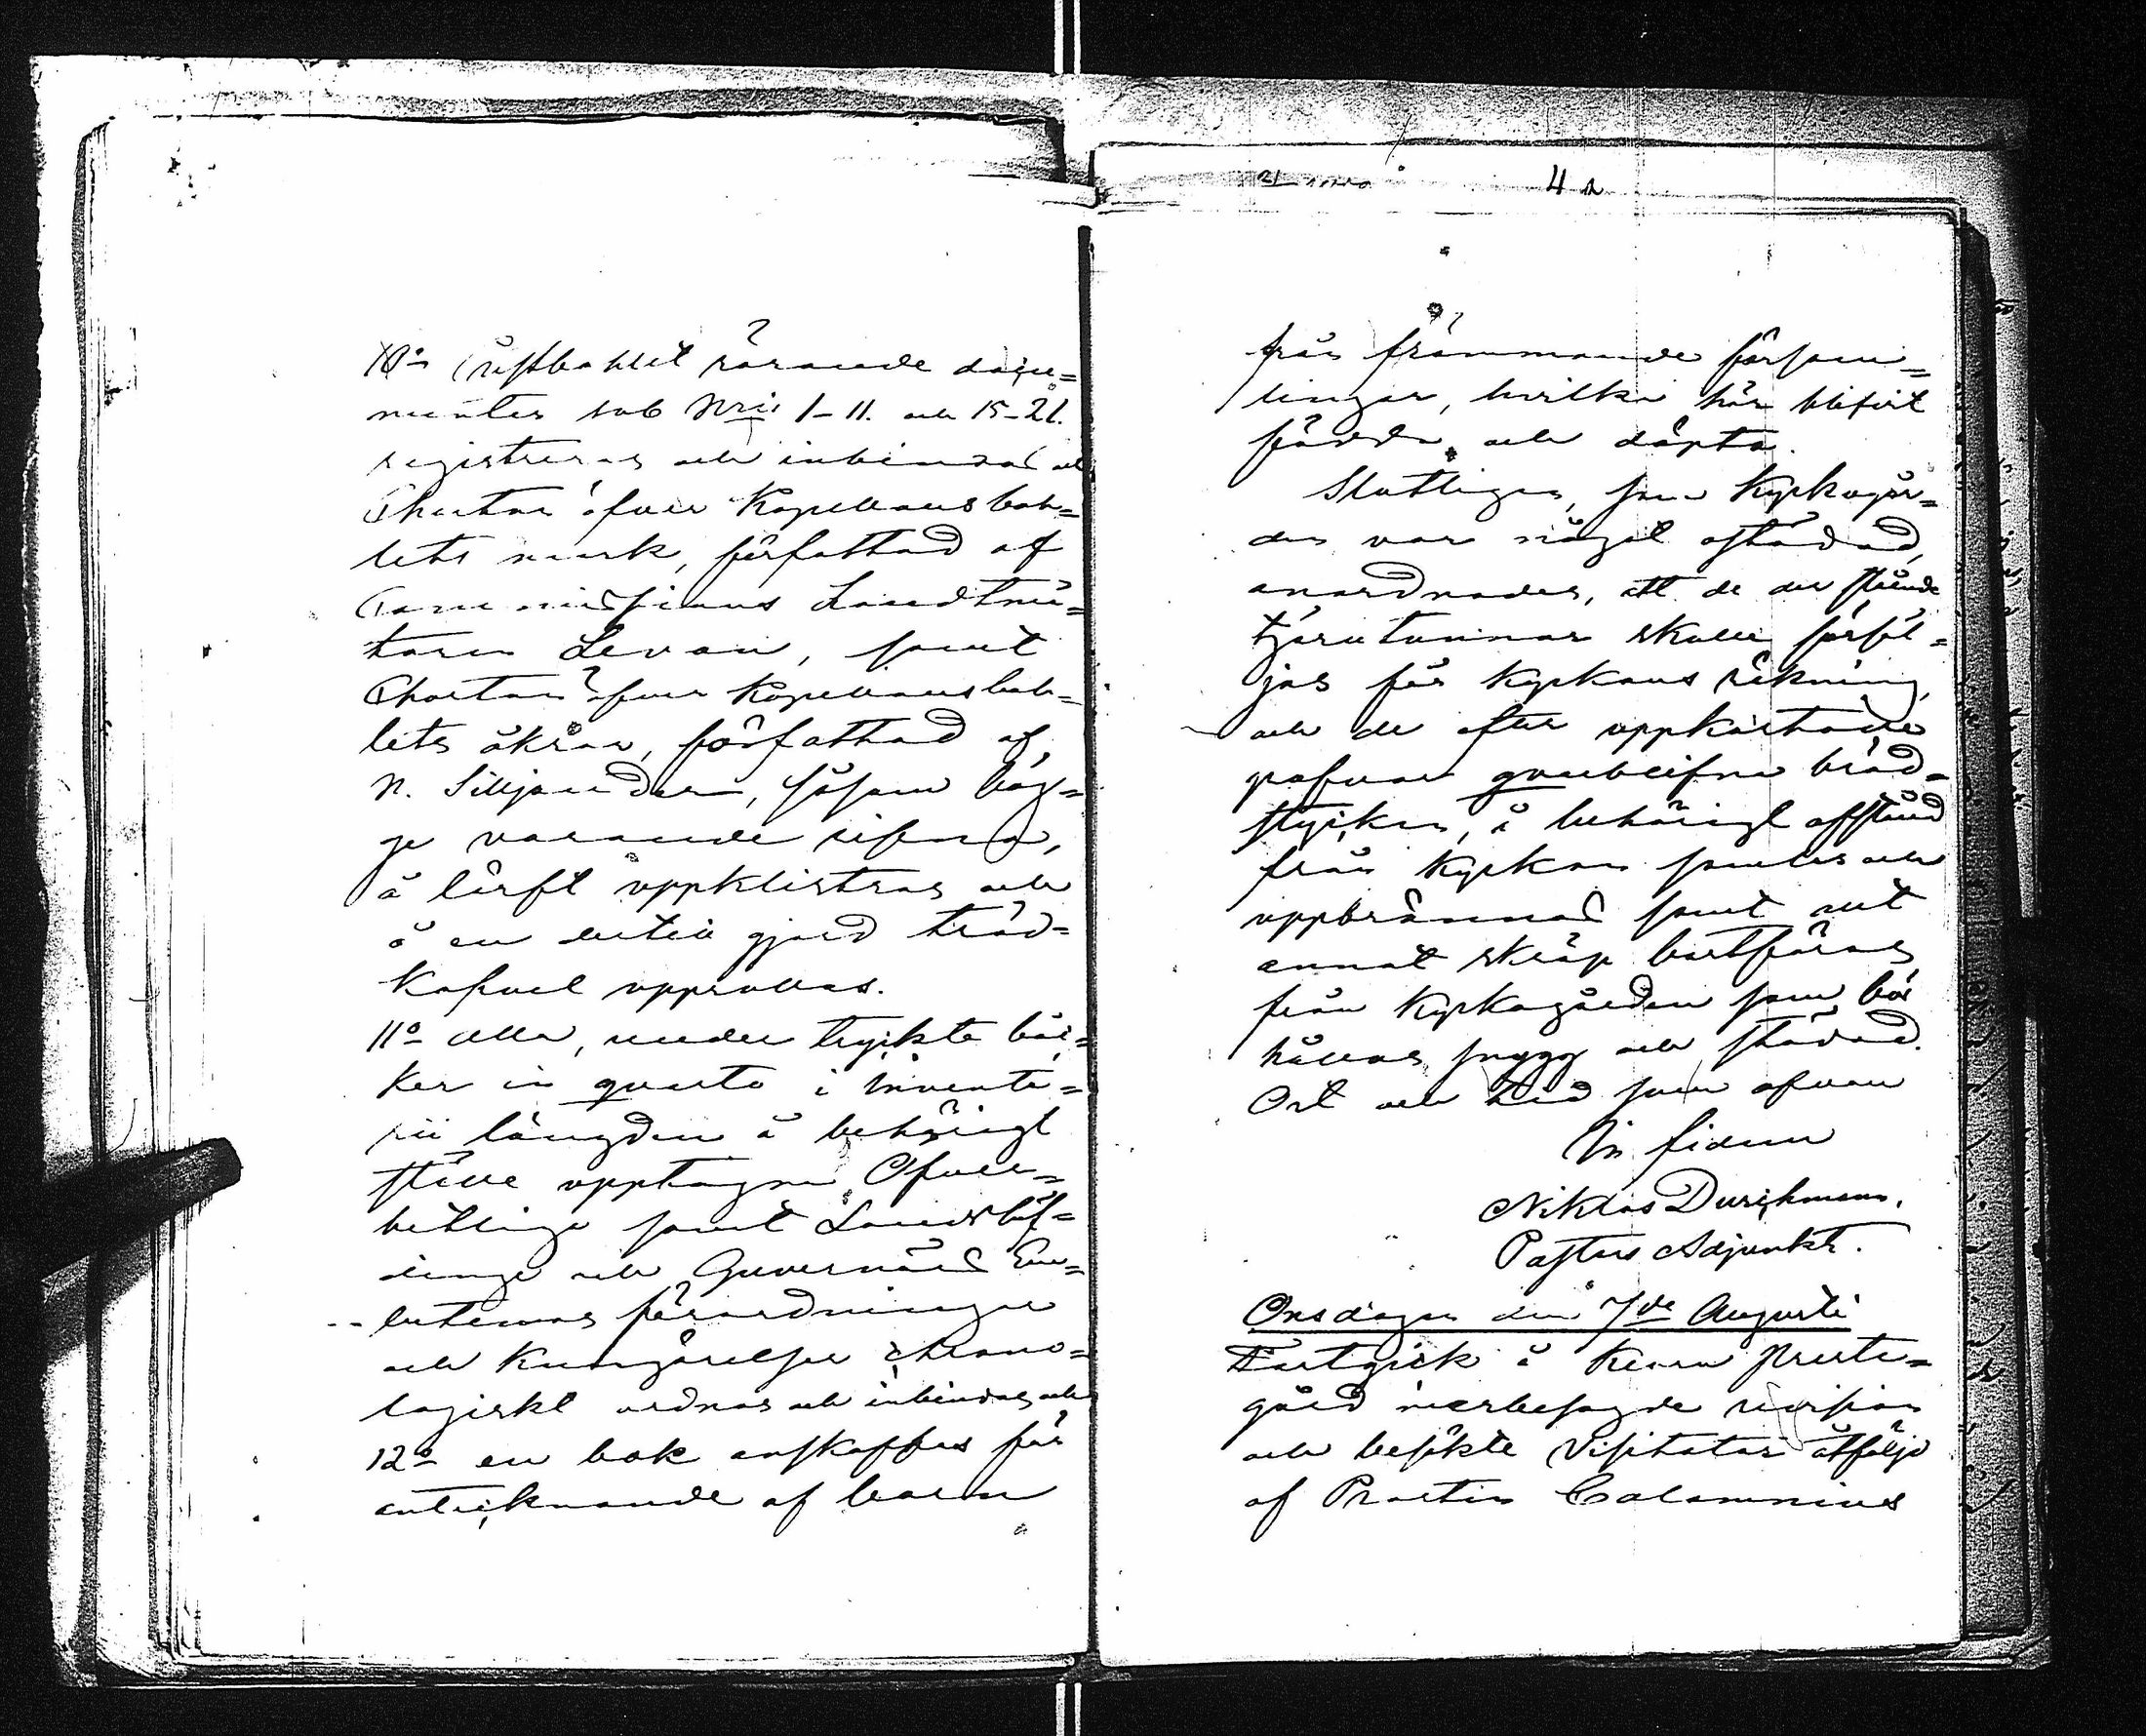 10º rustbohlet rörande docu=
menter sub Nris 1-11. och 15-21.
registreras och inbindas och
Chartan öfver Kapellansboh=
lets mark, författad af
Commissions Landtmä=
taren Levan, samt
Chartan öfver Kapellansboh=
lets åkrar, författad af
N. Siljander, såsom båg=
ge varande rifna,
å lärft uppklistras och
å en dertill gjord träd=
kafvel upprullas.
11º alla, under tryckta böc=
ker in quarto i Inventa=
rii längden å behörigt
ställe upptagna Öfver=
hetliga samt Landshöf=
dinge och Guverneurs Em=
betenas förordningar
och Kungörelser chrono=
logiskt ordnas och inbindas och
12º en bok anskaffas för
antecknande af barn
4 a
från främmande försam=
lingar, hvilka här blifvit
födda och döpta.
Slutligen, som Kyrkogår=
den var något ostädad,
anordnades, att de der stående
tjärutunnor skulle försäl=
jas för Kyrkans räkning,
och de efter uppkastade
grafvar qvarblifna bräd=
stycken, å behörigt afstånd
från Kyrkan samlas och
uppbrännas samt allt
annat skräp bortföras
från Kyrkogården som bör
hållas snygg och städad.
Ort och tid som ofvan
In fidem
Niklas Durchman.
Pastors Adjunkt.
Onsdagen den 7de Augusti
Försiggick å Kemi Preste=
gård merbesagde revision
och besökte Visitator åtföljd
af Prosten Calamnius